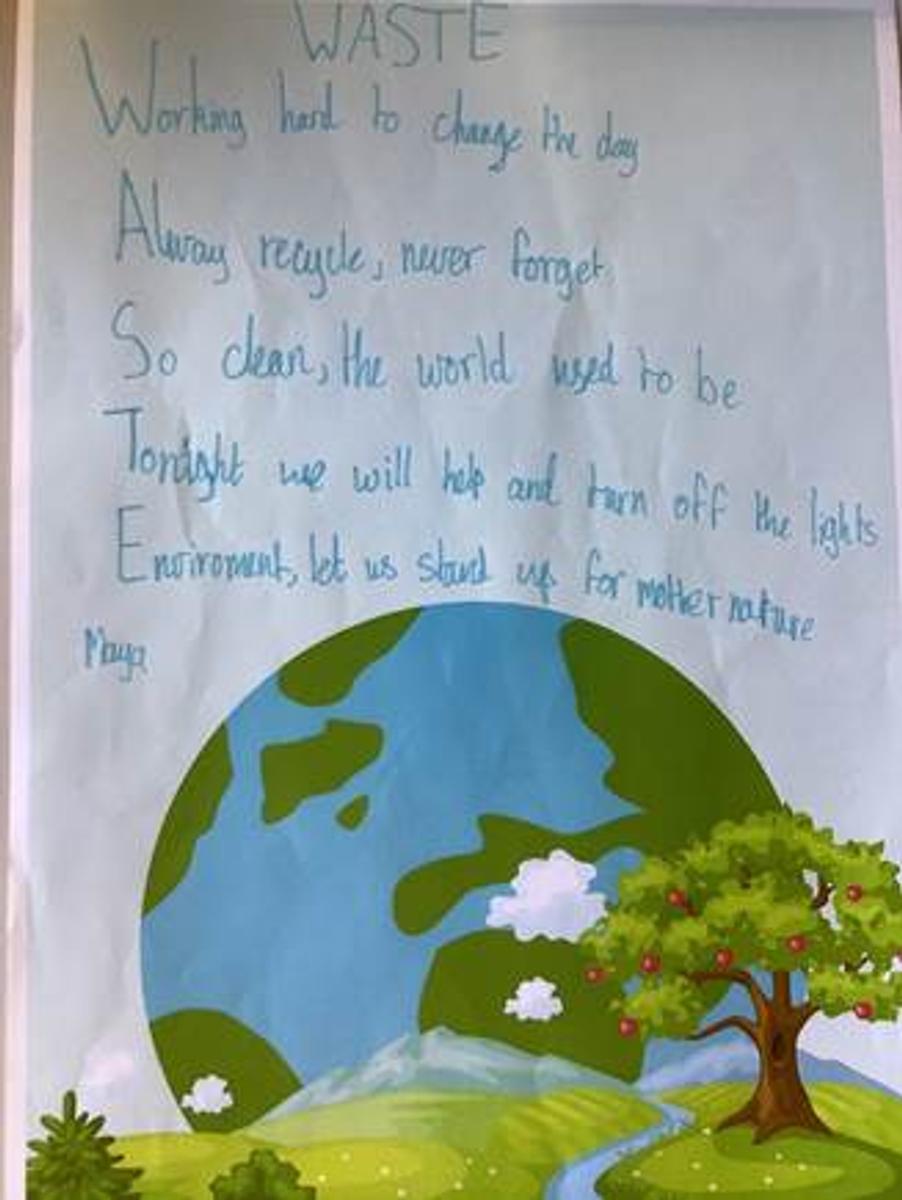 WASTE
Working hard to change the day
Alway recycle, never forget.
So clean, the world used to be
Tonight we will help and turn off the lights
Enviroment, let us stand up for mother nature
Maya